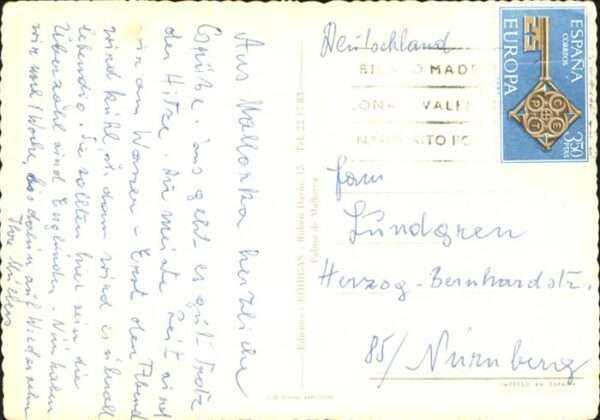 Aus Mallorca herzliche
Grüße. Uns geht es gut. Trotz
der Hitze. Die meiste Zeit sind
wir am Wasser - Erst der Abend
wird kühl, u. dann wird es überall
lebendig. Sie sollten hier sein die
Überzahl sind Engländer. Wir haben
wir noch 1 Woche, bis dahin auf Wiedersehen
Ihre
Ediciones BOHIGAS - Rubén Darío, 15 - Tel. 23 17 83
Palma de Mallorca
Deutschland
ESPAÑA
CORREOS
EUROPA
3'50
PTAS
CEPT
Frau
Lundgren
Herzog-Bernhardstr.
85/Nürnberg
IMPRESO EN ESPAÑA